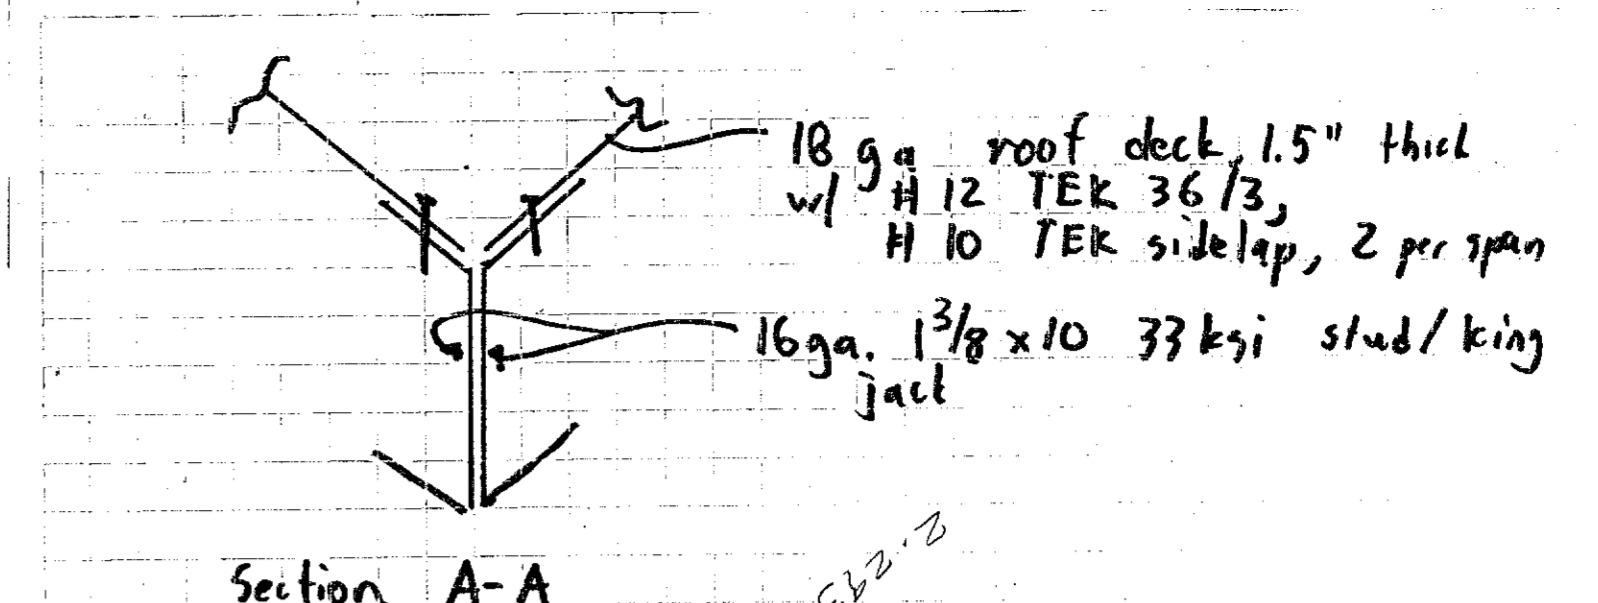 18 ga roof deck, 1.5" thick
w/ # 12 TEK 36/3,
# 10 TEK sidelap, 2 per span
16ga. 1 3/8 x 10 33 ksi stud/king
jack
Section A-A